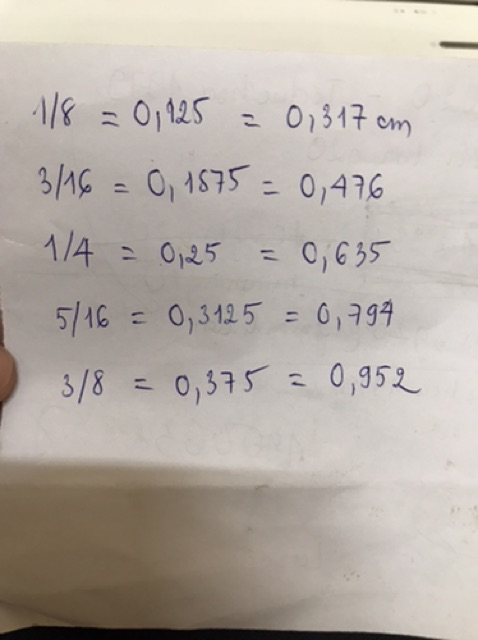 1/8 = 0,125 = 0,317 cm
3/16 = 0,1875 = 0,476
1/4 = 0,25 = 0,635
5/16 = 0,3125 = 0,794
3/8 = 0,375 = 0,952